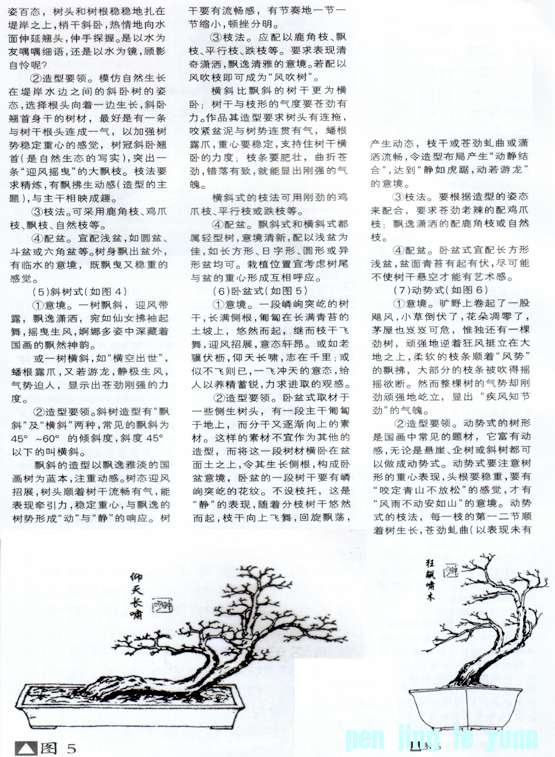 姿百态，树头和树根稳稳地扎在
堤岸之上，梢干斜卧，热情地向水
面伸延翘头，伸手探握。是以为
友喁喁细语，还是以水为镜，顾影
自怜呢？
②造型要领。模仿自然生长
在堤岸水边之间的斜卧树的姿
态，选择根头向着一边生长，斜卧
翘首身干的树材，最好是有一条
与树干根头连成一气，以加强树
势稳定重心的感觉，树冠斜卧翘
首（是自然生态的写实），突出一
条“迎风摇曳”的大飘枝。枝法要
求精炼，有飘拂生动感（造型的主
题），与主干相映成趣。
③枝法。可采用鹿角枝、鸡爪
枝、飘枝、自然枝等。
④配盆。宜配浅盆，如圆盆、
斗盆或六角盆等。树身飘出盆外，
有临水的意境，既飘曳又稳重的
感觉。
（5）斜树式（如图4）
①意境。一树飘斜，迎风带
露，飘逸潇洒，宛如仙女拂袖起
舞，摇曳生风，婀娜多姿中深藏着
国画的飘然神韵。
或一树横斜，如“横空出世”，
蟠根露爪，又若游龙，静极生风，
气势迫人，显示出苍劲刚强的力
度。
②造型要领。斜树造型有“飘
斜”及“横斜”两种，常见的飘斜为
45°~60°的倾斜度，斜度45°
以下的叫横斜。
飘斜的造型以飘逸雅淡的国
画树为蓝本，注重动感。树态迎风
招展，树头顺着树干流畅有气，能
表现牵引力，稳定重心，与飘逸的
树势形成“动”与“静”的响应。树
干要有流畅感，有节奏地一节一
节缩小，顿挫分明。
③枝法。应配以鹿角枝、飘
枝、平行枝、跌枝等。要求表现清
奇潇洒，飘逸清雅的意境。若配以
风吹枝即可成为“风吹树”。
横斜比飘斜的树干更为横
卧；树干与枝形的气度要苍劲有
力。作品其造型要求树头有连拖，
咬紧盆泥与树势连贯有气，蟠根
露爪，重心要稳定，支持住树干横
卧的力度，枝条要肥壮，曲折苍
劲，错落有致，就能显出刚强的气
魄。
横斜式的枝法可用刚劲的鸡
爪枝、平行枝或跌枝等。
④配盆。飘斜式和横斜式都
属轻型树，意境清新，配以浅盆为
佳，如长方形、日字形、圆形或异
形盆均可。栽植位置宜考虑树尾
与盆的重心形成互相呼应。
（6）卧盆式（如图5）
①意境。一段嶙峋突屹的树
干，长满侧根，匍匐在长满青苔的
土坡上，悠然而起，继而枝干飞
舞，迎风招展，意态轩昂。或如老
骥伏枥，仰天长啸，志在千里；或
似不飞则已，一飞冲天的意态，给
人以养精蓄锐，力求进取的观感。
②造型要领。卧盆式取材于
一些侧生树头，有一段主干匍匐
于地上，而分干又逐渐向上的素
材。这样的素材不宜作为其他的
造型，而将这一段树材横卧在盆
面土之上，令其生长侧根，构成卧
盆意境，卧盆的一段树干要有嶙
峋突屹的花纹。不设枝托，这是
“静”的表现，随着分枝树干悠然
而起，枝干向上飞舞，回旋飘荡，
产生动态，枝干或苍劲虬曲或潇
洒流畅，令造型布局产生“动静结
合”，达到“静如虎踞，动若游龙”
的意境。
③枝法。要根据造型的姿态
来配合，要求苍劲老辣的配鸡爪
枝；飘逸潇洒的配鹿角枝或自然
枝。
④配盆。卧盆式宜配长方形
浅盆，盆面青苔有起有伏，尽可能
不使树干悬空才能有艺术感。
（7）动势式（如图6）
①意境。旷野上卷起了一股
飓风，小草倒伏了，花朵凋零了，
茅屋也岌岌可危，惟独还有一棵
劲树，顽强地逆着狂风挺立在大
地之上，柔软的枝条顺着“风势”
的飘拂，大部分的枝条被吹得摇
摇欲断。然而整棵树的气势却刚
劲顽强地屹立，显出“疾风知节
劲”的气魄。
②造型要领。动势式的树形
是国画中常见的题材，它富有动
感，无论是悬崖、企树或斜树都可
以做成动势式。动势式要注意树
形的重心表现，头根要稳重，要有
“咬定青山不放松”的感觉，才有
“风雨不动安如山”的意境。动势
式的枝法，每一枝的第一二节顺
着树生长，苍劲虬曲（以表现未有
仰天长啸
狂飙啸木
图 5
pen jing le yuan